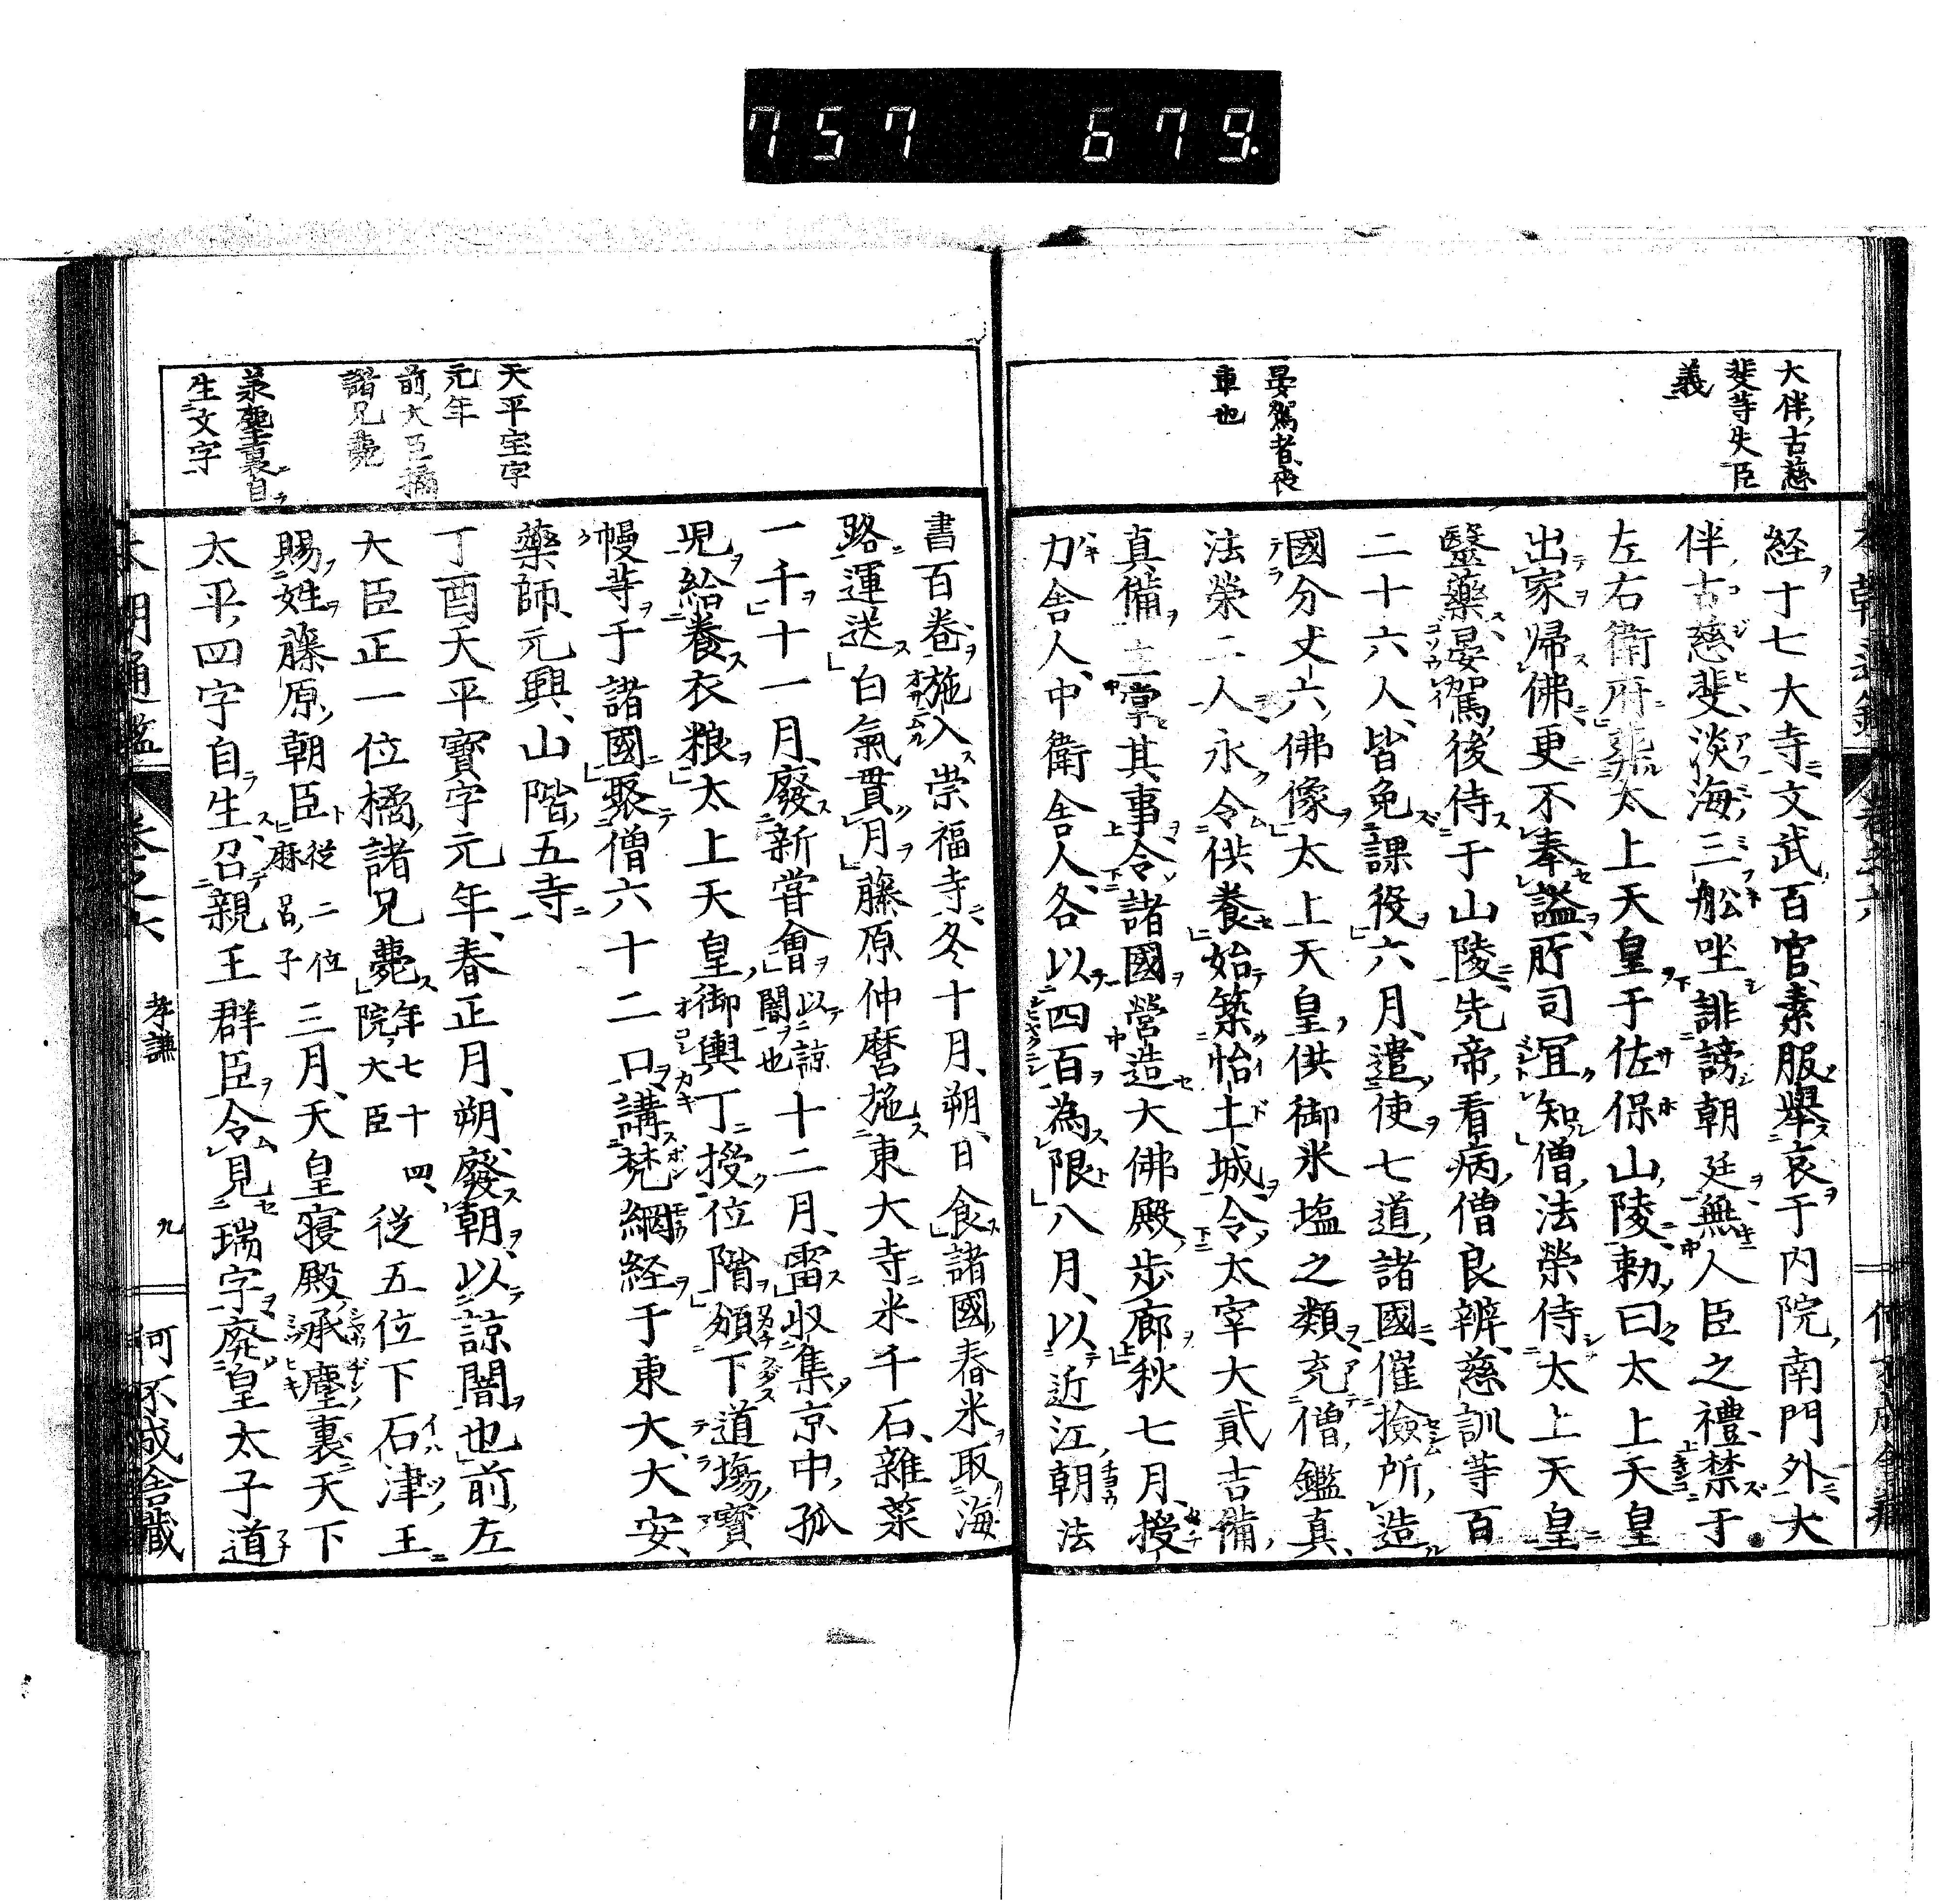 757 679.
大伴古慈
斐等失臣
義
晏駕者夜
車也
経十七大寺文武百官素服舉哀于内院南門外大
伴古慈斐淡海三舩坐誹謗朝廷無人臣之禮禁于
左右衛府葬太上天皇于佐保山陵勅曰太上天皇
出家帰佛更不奉謚所司冝知僧法榮侍太上天皇
醫藥晏駕後侍于山陵先帝看病僧良辨慈訓等百
二十六人皆免課役六月遣使七道諸國催撿所造
國分丈六佛像太上天皇供御米塩之類充僧鑑真
法榮二人永令供養始築怡土城令太宰大貳吉備
真備主掌其事令諸國營造大佛殿歩廊秋七月授
力舎人中衛舎人各以四百為限八月以近江朝法
天平宝字
元年
前大臣橘
諸兄薨
承塵裏自
生文字
書百巻施入崇福寺冬十月朔日食諸國舂米取海
路運送白氣貫月藤原仲麿施東大寺米千石雜菜
一千十一月廢新嘗會以諒闇也十二月雷収集京中孤
児給養衣粮太上天皇御輿丁授位階頒下道場寶
幔等于諸國聚僧六十二口講梵網経于東大大安
藥師元興山階五寺
丁酉天平寶字元年春正月朔廢朝以諒闇也前左
大臣正一位橘諸兄薨年七十四院大臣従五位下石津王
賜姓藤原朝臣従二位麻呂子三月天皇寝殿承塵裏天下
太平四字自生召親王群臣令見瑞字廢皇太子道
卷之六 孝謙 九